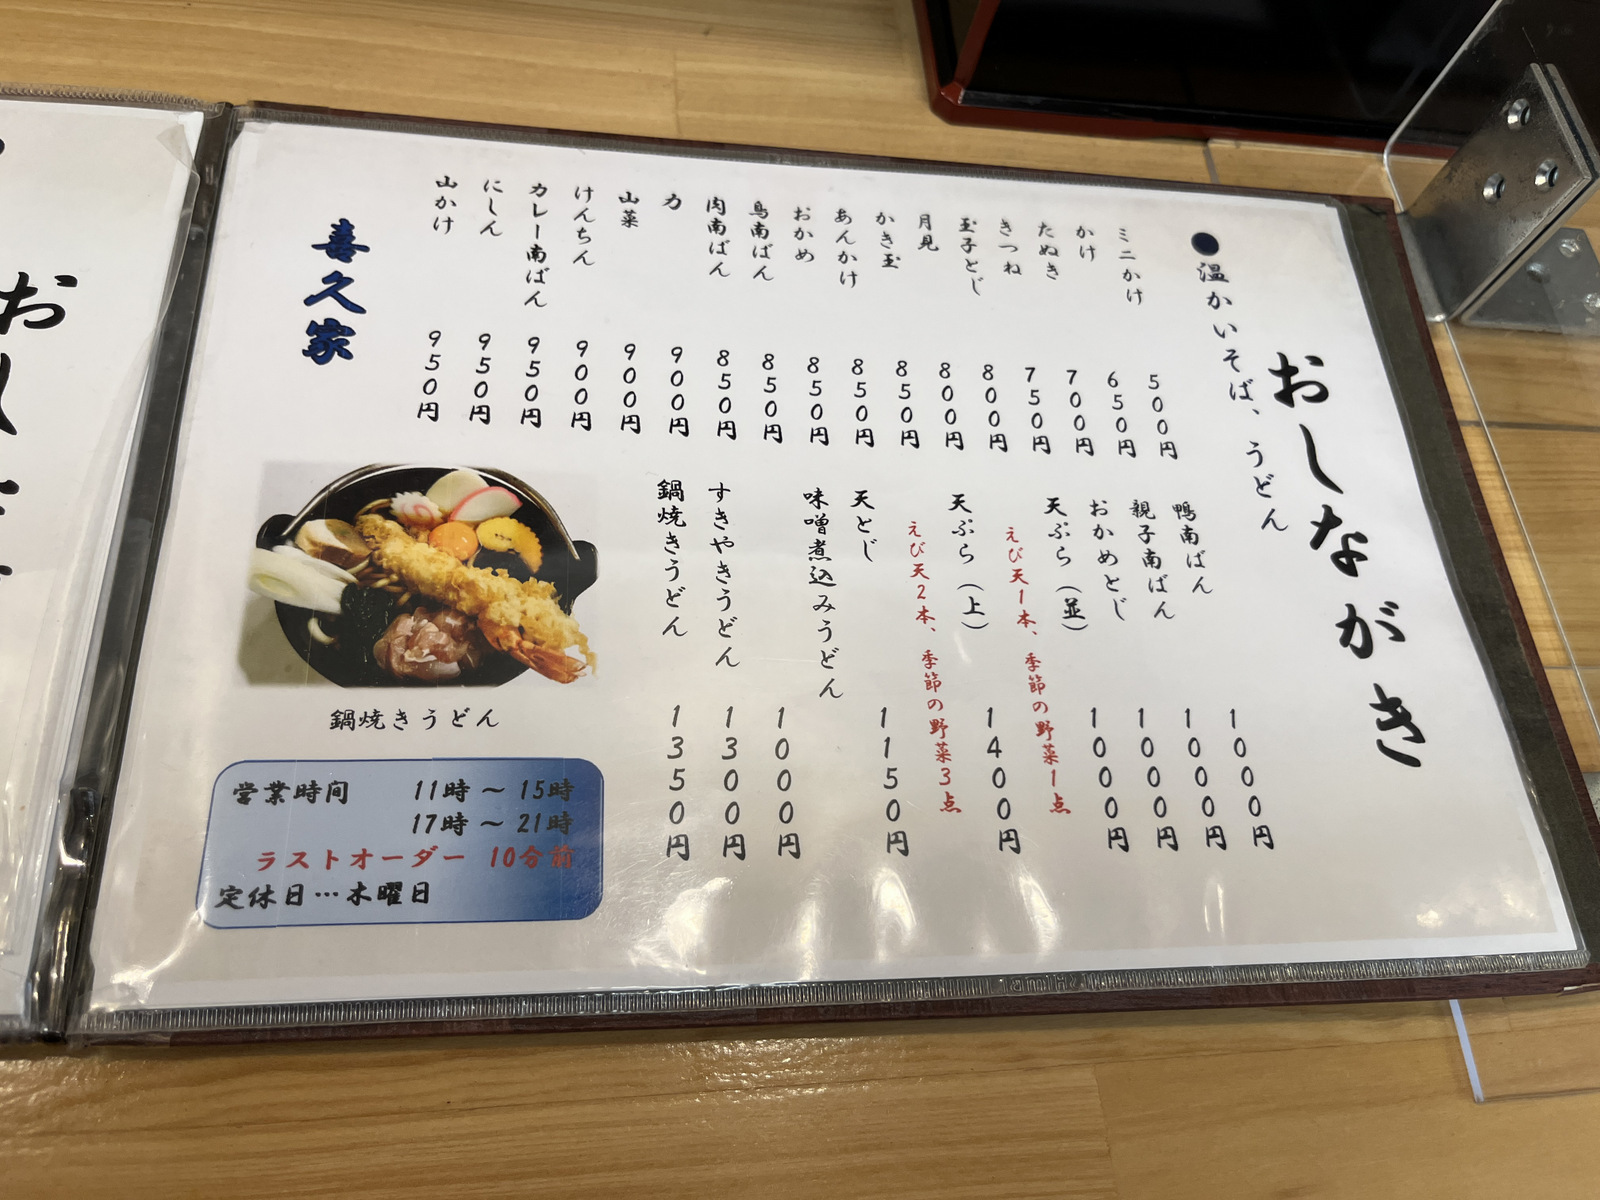 おしながき
●温かいそば、うどん
ミニかけ 500円
かけ 650円
たぬき 700円
きつね 750円
玉子とじ 800円
月見 800円
かき玉 850円
あんかけ 850円
おかめ 850円
鳥南ばん 850円
肉南ばん 850円
力 900円
山菜 900円
けんちん 900円
カレー南ばん 950円
にしん 950円
山かけ 950円
鴨南ばん 1000円
親子南ばん 1000円
おかめとじ 1000円
天ぷら（並） 1000円
えび天1本、季節の野菜1点
天ぷら（上） 1400円
えび天2本、季節の野菜3点
天とじ 1150円
味噌煮込みうどん 1000円
すきやきうどん 1300円
鍋焼きうどん 1350円
喜久家
鍋焼きうどん
営業時間 11時～15時
17時～21時
ラストオーダー 10分前
定休日…木曜日